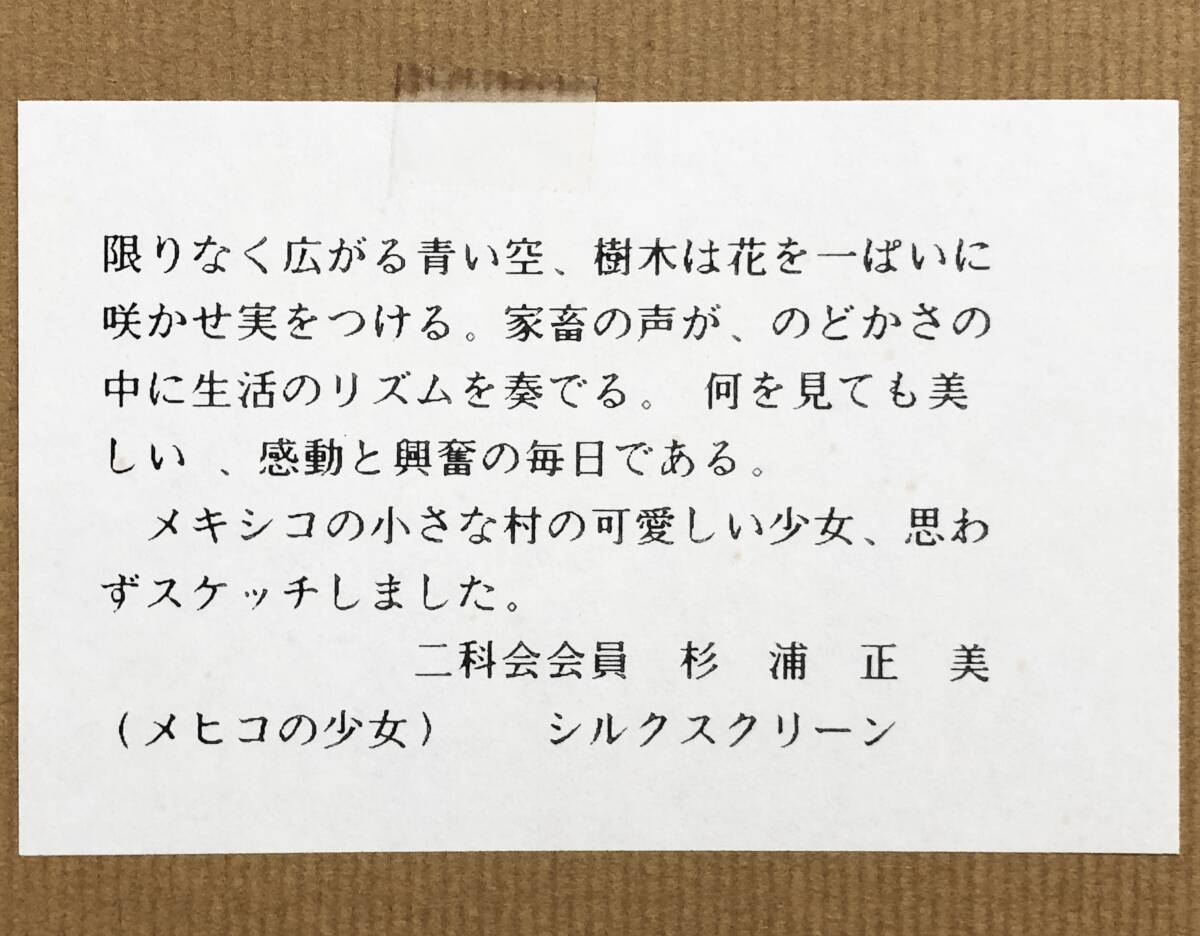 限りなく広がる青い空、樹木は花を一ぱいに
咲かせ実をつける。家畜の声が、のどかさの
中に生活のリズムを奏でる。 何を見ても美
しい 、感動と興奮の毎日である。
　メキシコの小さな村の可愛しい少女、思わ
ずスケッチしました。
二科会会員　杉　浦　正　美
(メヒコの少女)　　シルクスクリーン